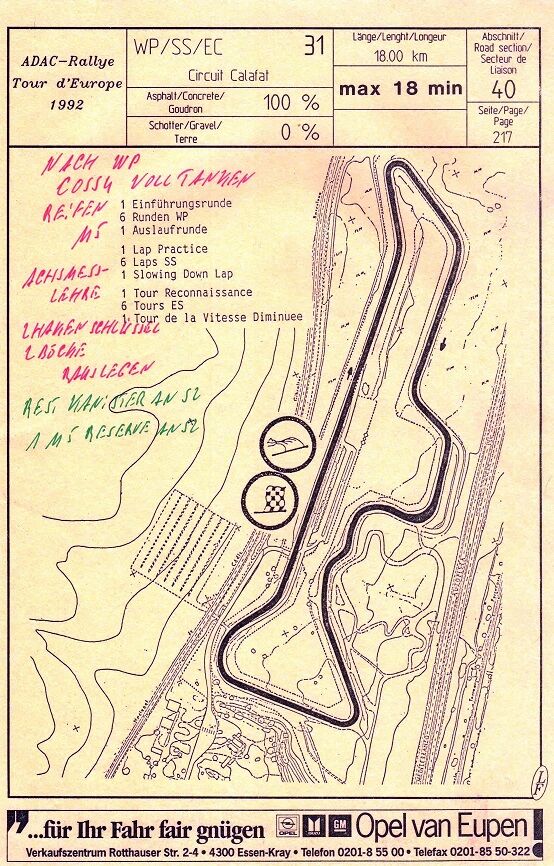 ADAC-Rallye
Tour d'Europe
1992
WP/SS/EC 31
Circuit Calafat
Asphalt/Concrete/
Goudron 100 %
Schotter/Gravel/
Terre 0 %
Länge/Lenght/Longeur
18.00 km
max 18 min
Abschnitt/
Road section/
Secteur de
Liaison
40
Seite/Page/
Page
217
NACH WP
COSSY VOLLTANKEN
REIFEN
M5
1 Einführungsrunde
6 Runden WP
1 Auslaufrunde
1 Lap Practice
6 Laps SS
1 Slowing Down Lap
1 Tour Reconnaissance
6 Tours ES
1 Tour de la Vitesse Diminuee
ACHSMESS-
LEHRE
2 HAKENSCHLÜSSEL
2 BÖCKE
RAUSLEGEN
REST KANISTER AN S2
1 M5 RESERVE AN S2
"...für Ihr Fahr fair gnügen
OPEL
ISUZU
GM
Opel van Eupen
Verkaufszentrum Rotthauser Str. 2-4 • 4300 Essen-Kray • Telefon 0201-8 55 00 • Telefax 0201-85 50-322